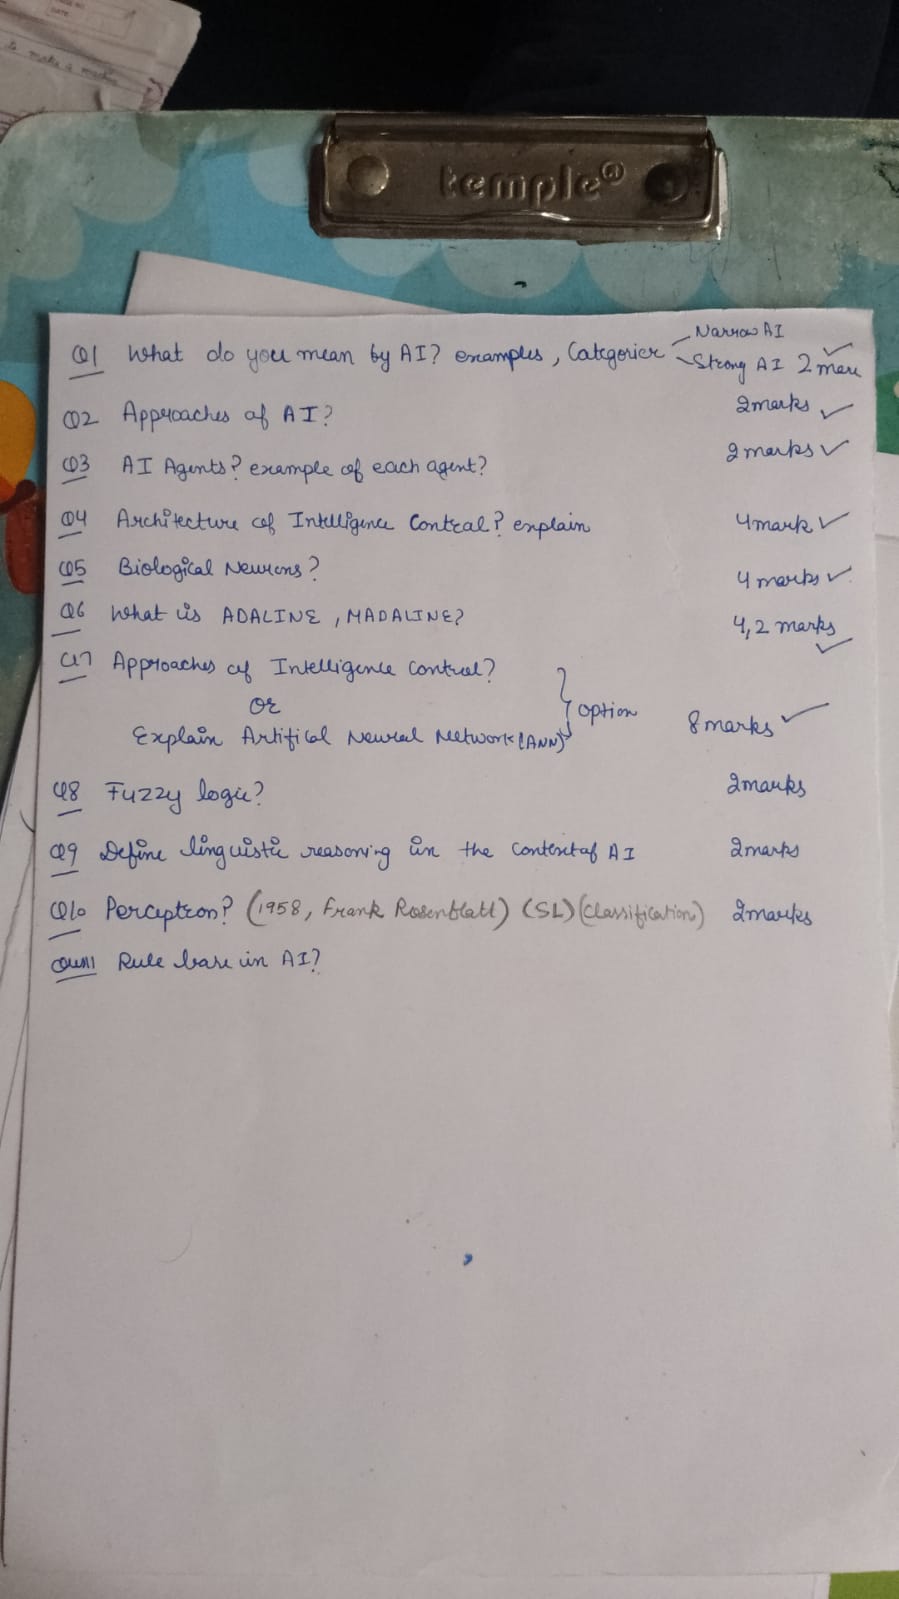 DATE
to make a machine
temple
Q1 What do you mean by AI? examples, Categories Narrow AI
Strong AI 2 mark
Q2 Approaches of AI? 2marks
Q3 AI Agents? example of each agent? 2marks
Q4 Architecture of Intelligence Control? explain 4mark
Q5 Biological Neurons? 4 marks
Q6 What is ADALINE, MADALINE? 4,2 marks
Q7 Approaches of Intelligence Control?
or
Explain Artifical Neural Network (ANN) } option 8marks
Q8 Fuzzy logic? 2marks
Q9 Define linguistic reasoning in the context of AI 2marks
Q10 Perceptron? (1958, Frank Rosenblatt) (SL) (Classification) 2marks
Rule base in AI?